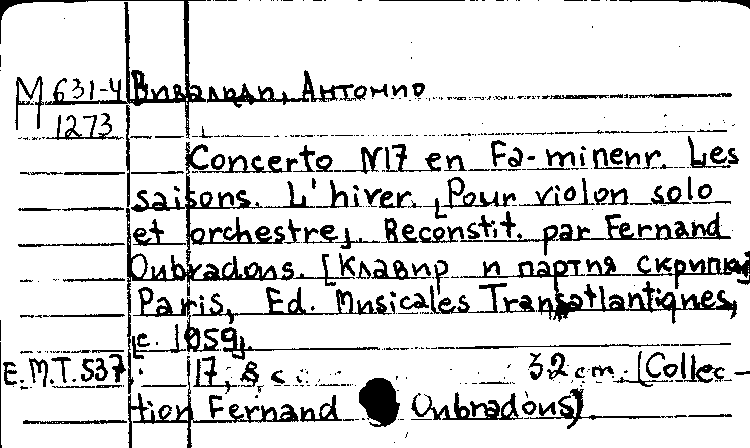 М 631-4 Вивальди, Антонио
1273
Concerto N17 en Fa-minenr. Les
saisons. L'hiver. [Pour violon solo
et orchestre]. Reconstit. par Fernand
Oubradous. [Клавир и партия скрипки]
Paris, Ed. Musicales Transatlantiques,
[c. 1959].
E.M.T.537. 17, 8 c. 32 cm. (Collec-
tion Fernand Oubradous).